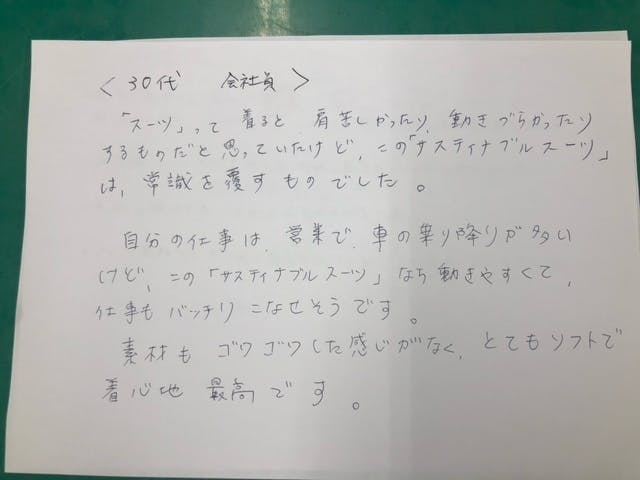 ＜30代　会社員＞
「スーツ」って着ると肩苦しかったり、動きづらかったり
するものだと思っていたけど、この「サスティナブルスーツ」
は、常識を覆すものでした。
自分の仕事は、営業で、車の乗り降りが多い
けど、この「サスティナブルスーツ」なら動きやすくて、
仕事もバッチリこなせそうです。
素材もゴワゴワした感じがなく、とてもソフトで
着心地最高です。